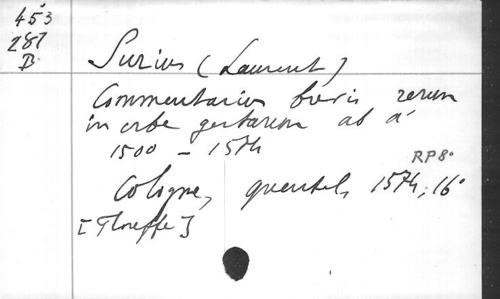 453
287
B
Surius (Laurent)
Commentarius brevis rerum
in orbe gestarum ab a°
1500 - 1574
RP 8°
Cologne, Quentel, 1574, 16°
[Floreffe]